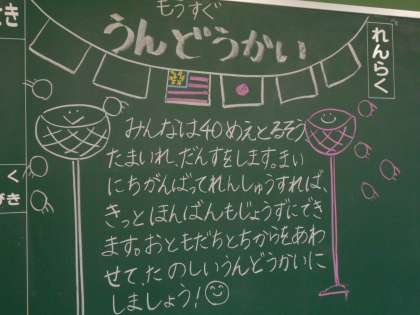 もうすぐ
うんどうかい
れんらく
みんなは40めえとるそう、
たまいれ、だんすをします。まい
にちがんばってれんしゅうすれば、
きっとほんばんもじょうずにでき
ます。おともだちとちからをあわ
せて、たのしいうんどうかいに
しましょう!